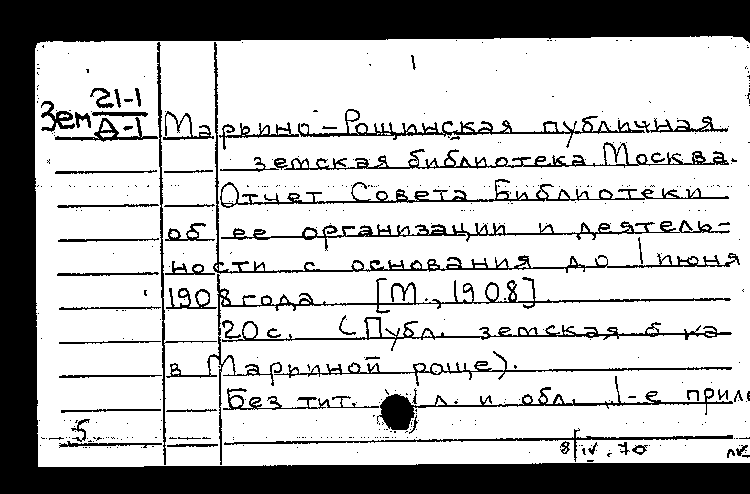 1
Зем 21-1
Д-1
Марьино-Рощинская публичная
земская библиотека. Москва.
Отчет Совета Библиотеки
об ее организации и деятель-
ности с основания до 1 июня
1908 года. [М., 1908].
20 с. (Публ. земская б-ка
в Марьиной роще).
Без тит. л. и обл. 1-е
5
8/IV.70